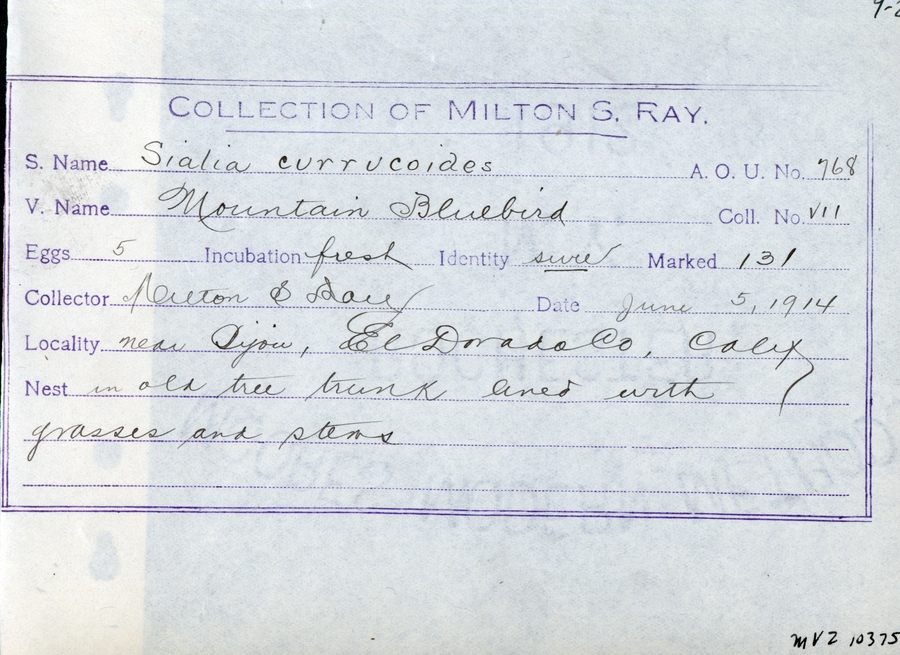 COLLECTION OF MILTON S. RAY.
S. Name Sialia currucoides A. O. U. No. 768
V. Name Mountain Bluebird Coll. No. VII
Eggs 5 Incubation fresh Identity sure Marked 131
Collector Milton S Ray Date June 5, 1914
Locality near Bijou, El Dorado Co, Calif
Nest in old tree trunk lined with
grasses and stems
MVZ 10375